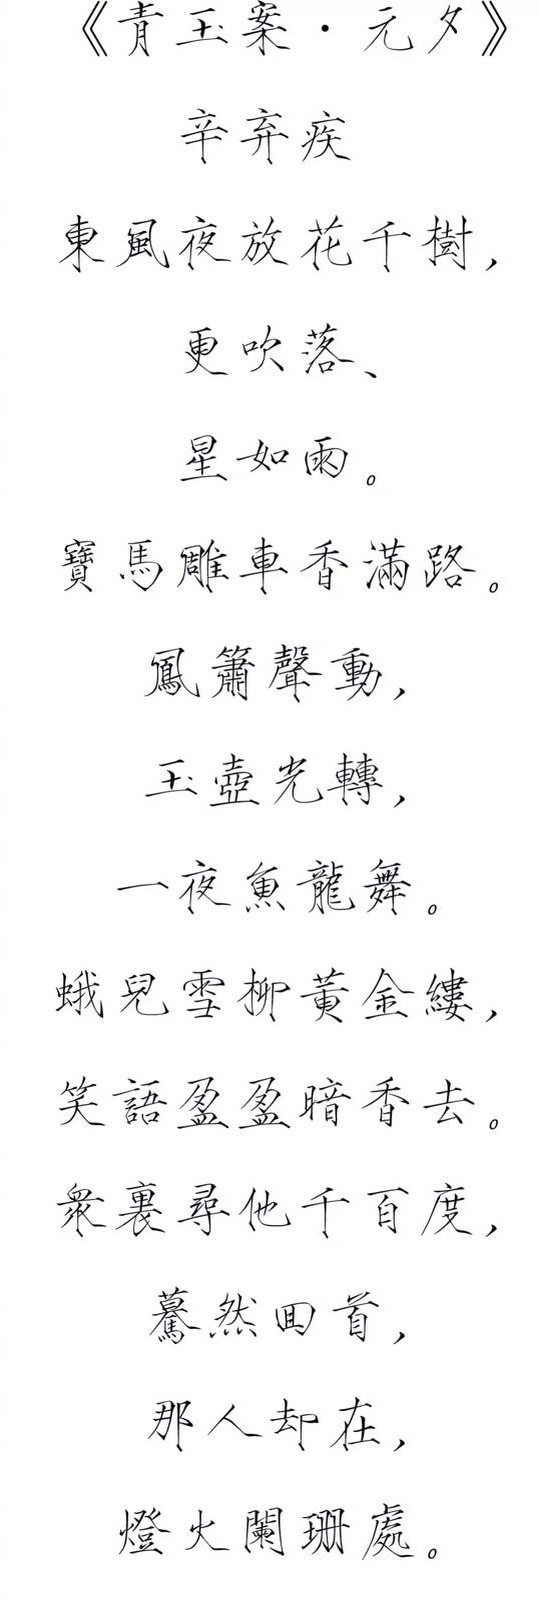 《青玉案·元夕》
辛弃疾
東風夜放花千樹，
更吹落、
星如雨。
寶馬雕車香滿路。
鳳簫聲動，
玉壺光轉，
一夜魚龍舞。
蛾兒雪柳黃金縷，
笑語盈盈暗香去。
衆裏尋他千百度，
驀然回首，
那人却在，
燈火闌珊處。